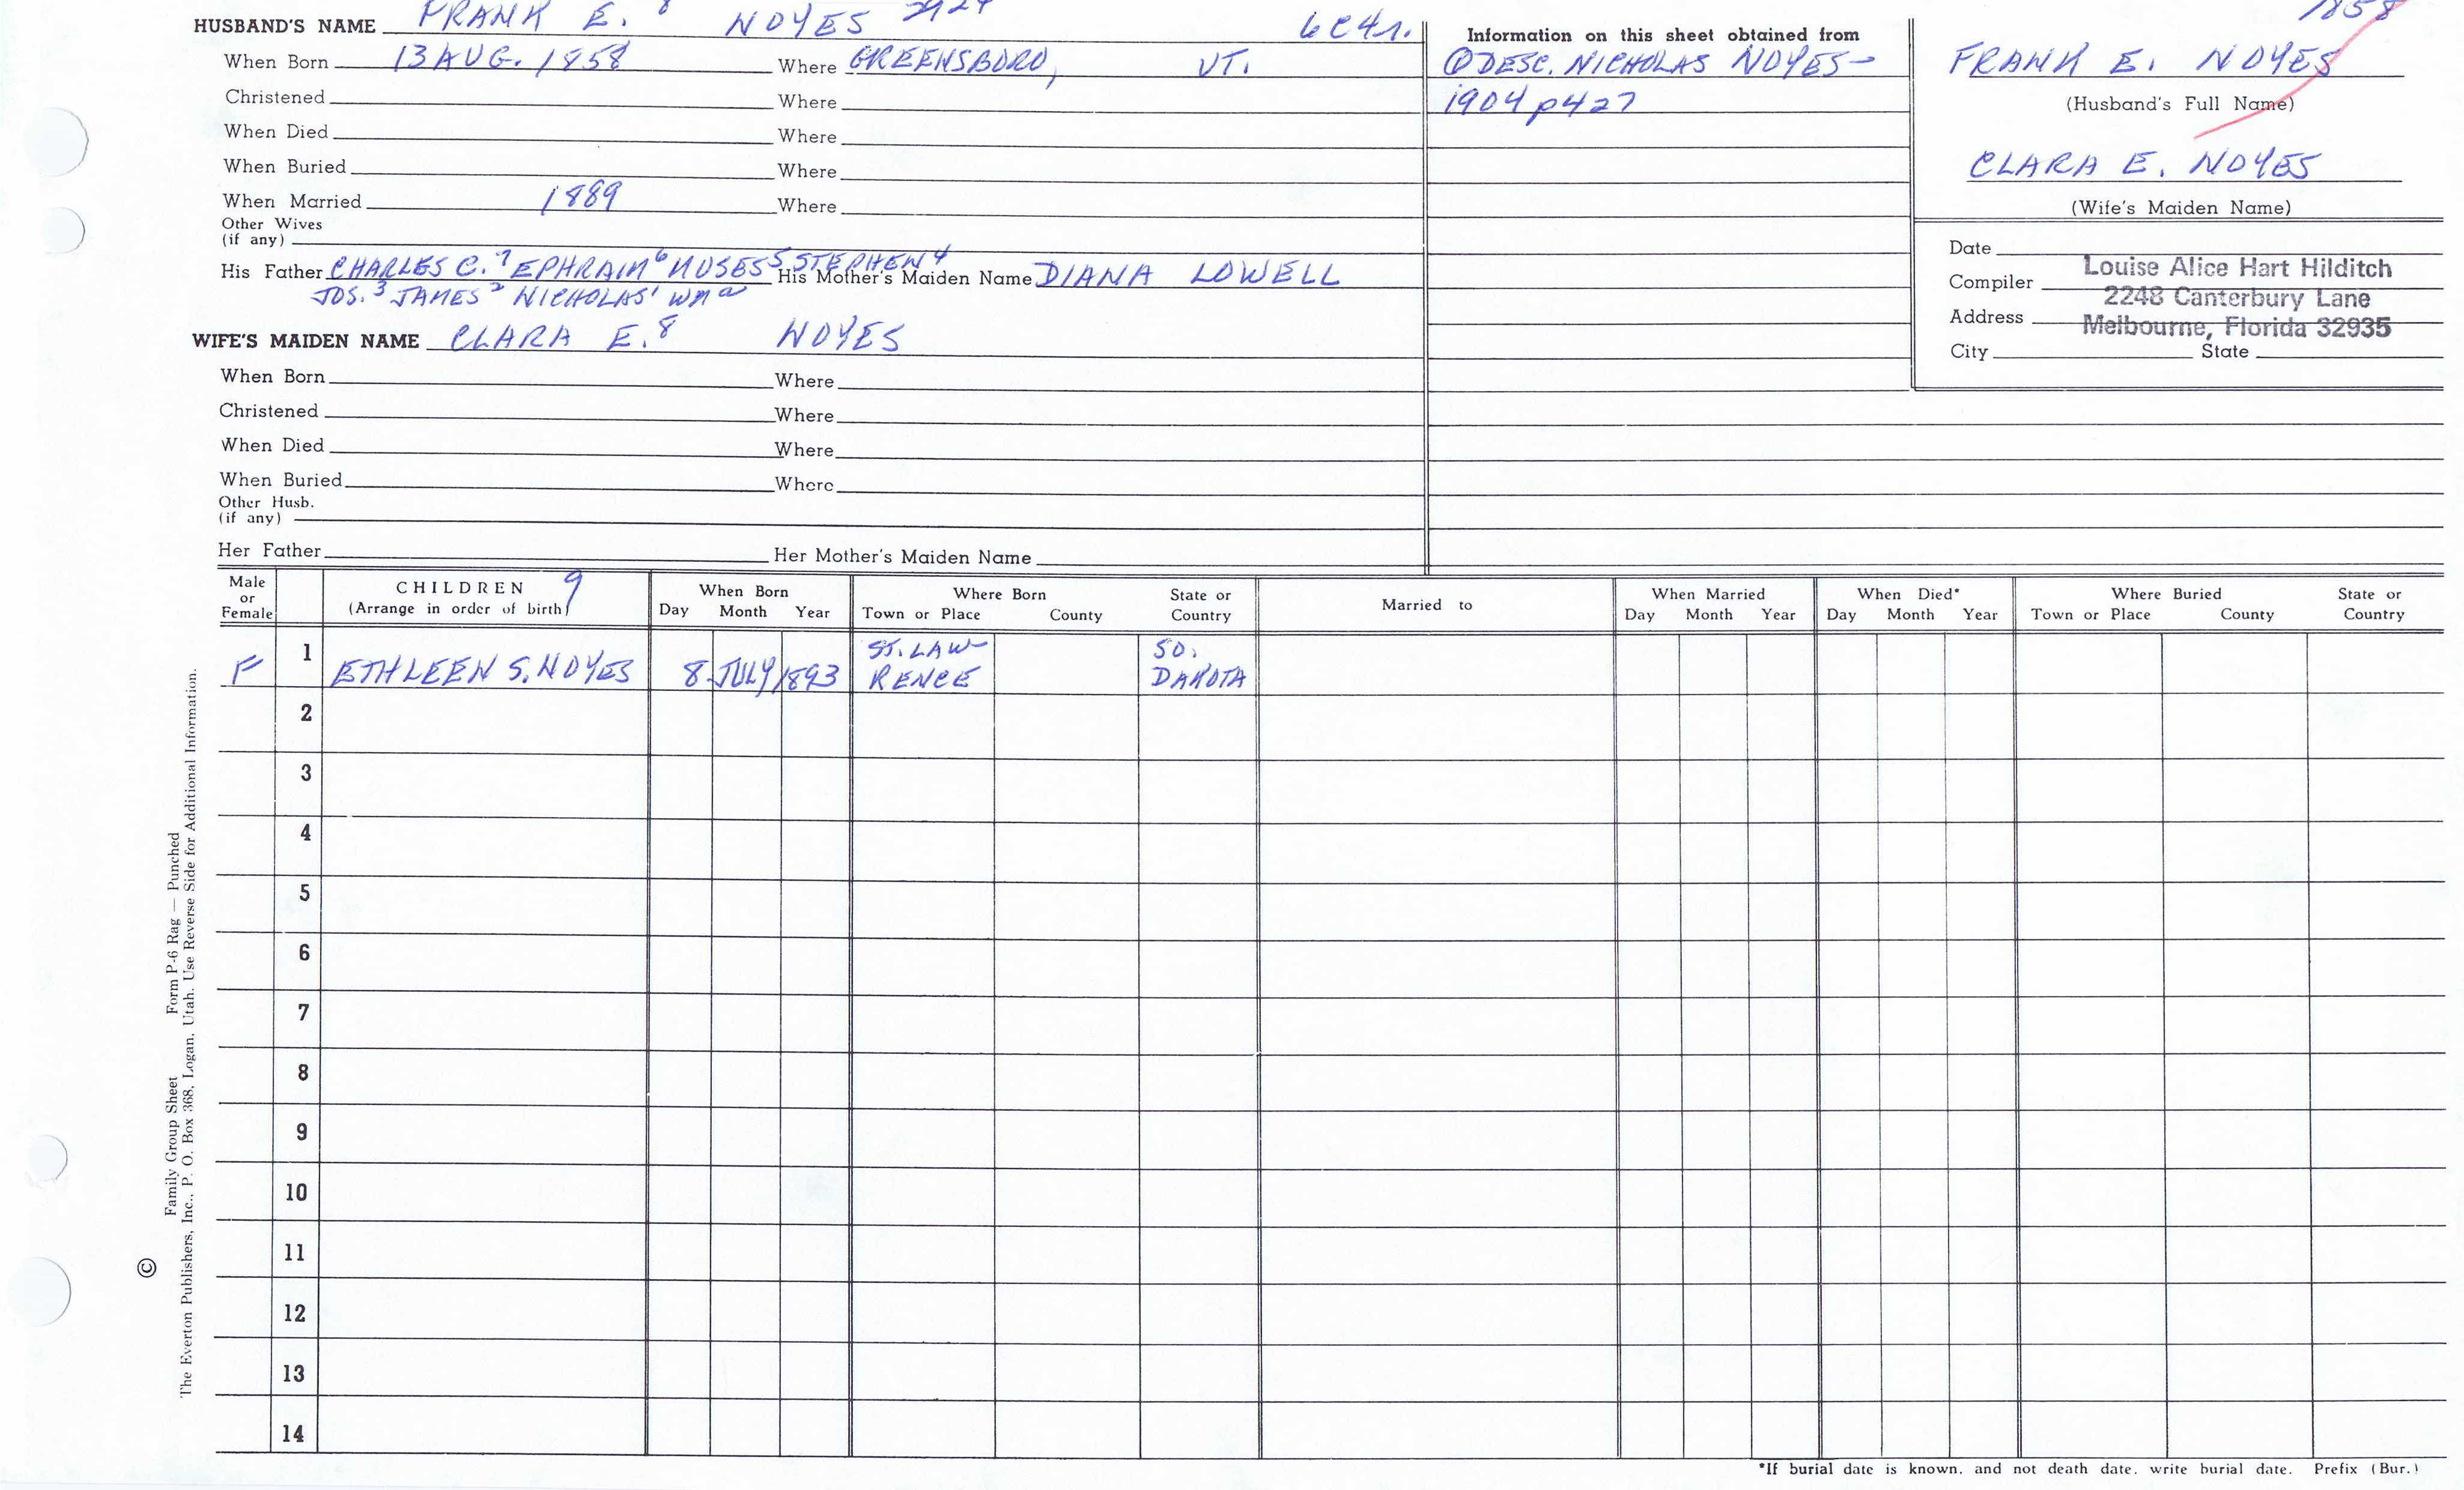 HUSBAND'S NAME FRANK E. 8 NOYES
When Born 13 AUG. 1858 Where GREENSBORO, VT.
Christened Where
When Died Where
When Buried Where
When Married 1889 Where
Other Wives
(if any)
His Father CHARLES C.7 EPHRAIM6 MOSES5 STEPHEN4 His Mother's Maiden Name DIANA LOWELL
JOS.3 JAMES2 NICHOLAS1 WM a
WIFE'S MAIDEN NAME CLARA E.8 NOYES
When Born Where
Christened Where
When Died Where
When Buried Where
Other Husb.
(if any)
Her Father Her Mother's Maiden Name
Information on this sheet obtained from
① DESC. NICHOLAS NOYES-
1904 p427
1858
FRANK E. NOYES
(Husband's Full Name)
CLARA E. NOYES
(Wife's Maiden Name)
Date
Compiler Louise Alice Hart Hilditch
2248 Canterbury Lane
Address Melbourne, Florida 32935
City State
Male or Female CHILDREN 9 (Arrange in order of birth) When Born Day Month Year Where Born Town or Place County State or Country Married to When Married Day Month Year When Died* Day Month Year Where Buried Town or Place County State or Country
F 1 ETHLEEN S. NOYES 8 JULY 1893 ST. LAW- RENCE SO. DAKOTA
2
3
4
5
6
7
8
9
10
11
12
13
14
*If burial date is known, and not death date, write burial date. Prefix (Bur.)
© Family Group Sheet Form P-6 Rag — Punched
The Everton Publishers, Inc., P. O. Box 368, Logan, Utah. Use Reverse Side for Additional Information.